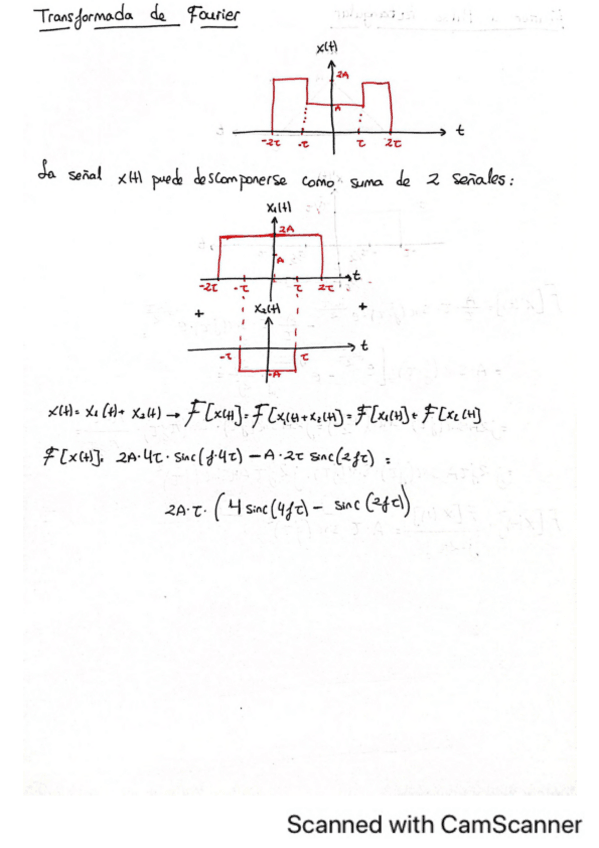 Transformada de Fourier
x(t)
2A
A
t
-2τ -τ τ 2τ
La señal x(t) puede descomponerse como suma de 2 señales:
x₁(t)
2A
A
t
-2τ -τ τ 2τ
+ x₂(t) +
-τ τ t
-A
x(t)= x₁(t)+ x₂(t) → F[x(t)]=F[x₁(t)+x₂(t)]=F[x₁(t)]+F[x₂(t)]
F[x(t)]= 2A·4τ·sinc(f·4τ)-A·2τ sinc(2fτ) =
2A·τ·(4 sinc(4fτ)- sinc(2fτ))
Scanned with CamScanner